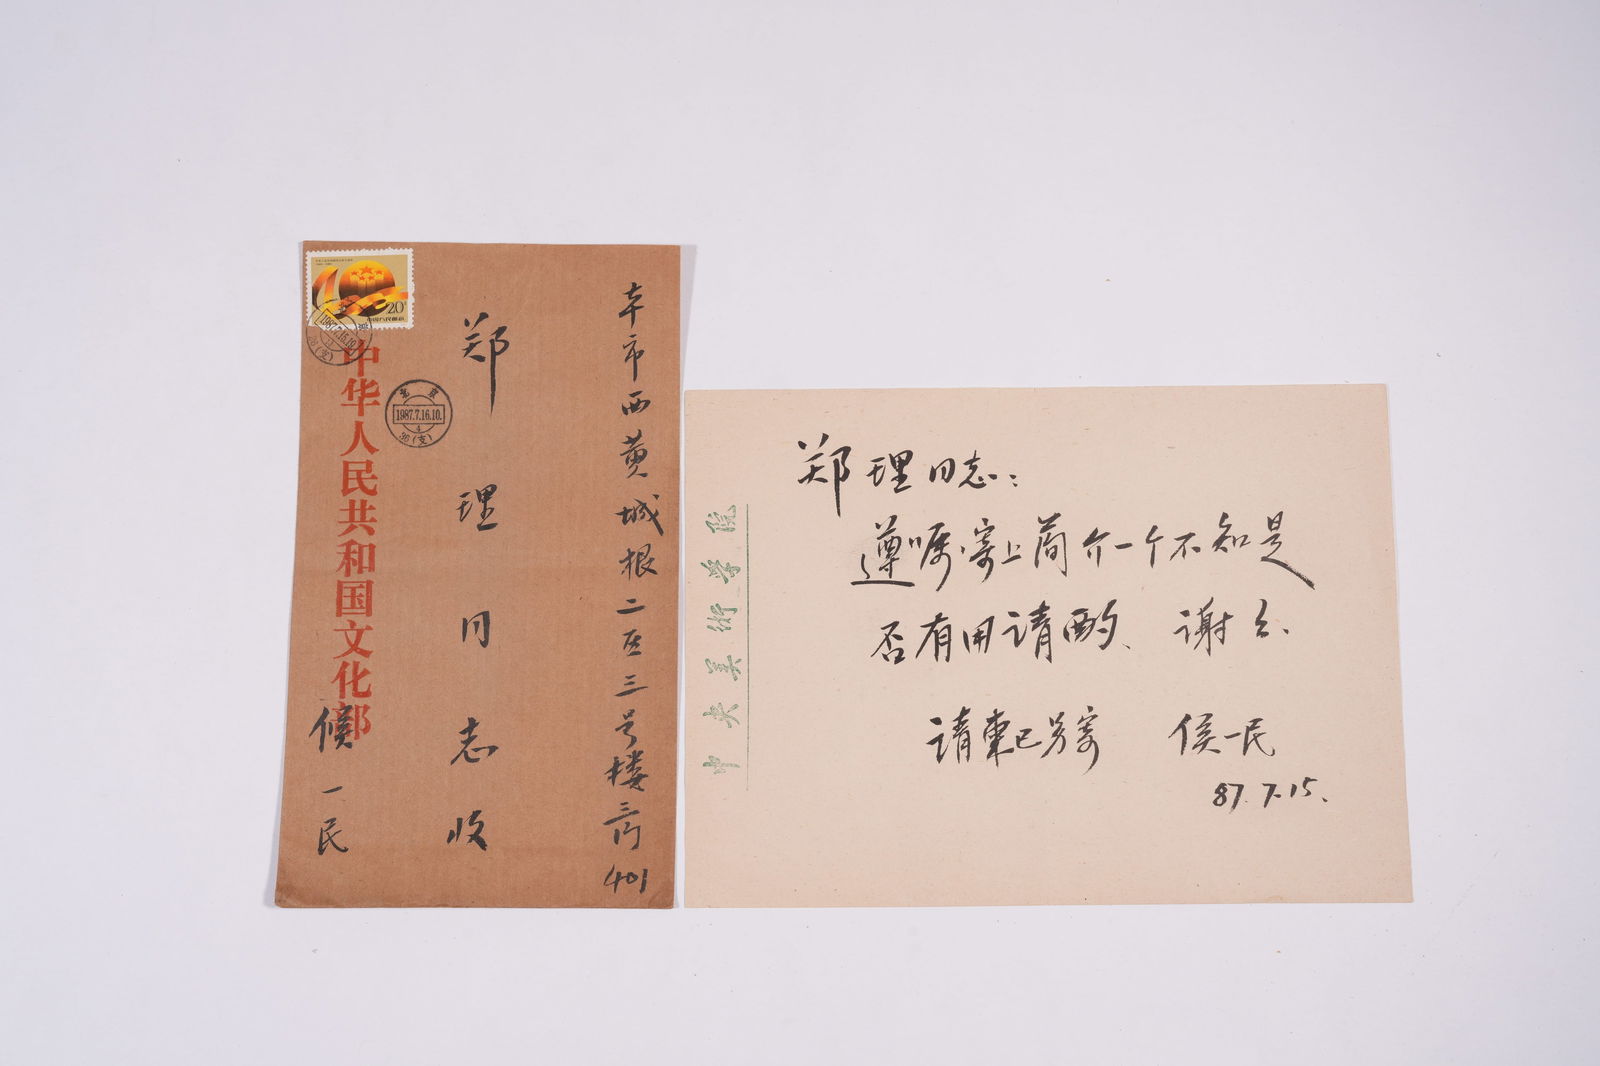 本市西黄城根二区三号楼三门401
郑理同志收
中华人民共和国文化部
侯一民
20
中国人民邮政
北京
1987.7.16.10.
4
36(支)
中央美術学院
郑理同志：
遵嘱寄上简介一个不知是
否有用请酌、谢谢.
请柬已另寄 侯一民
87.7.15.